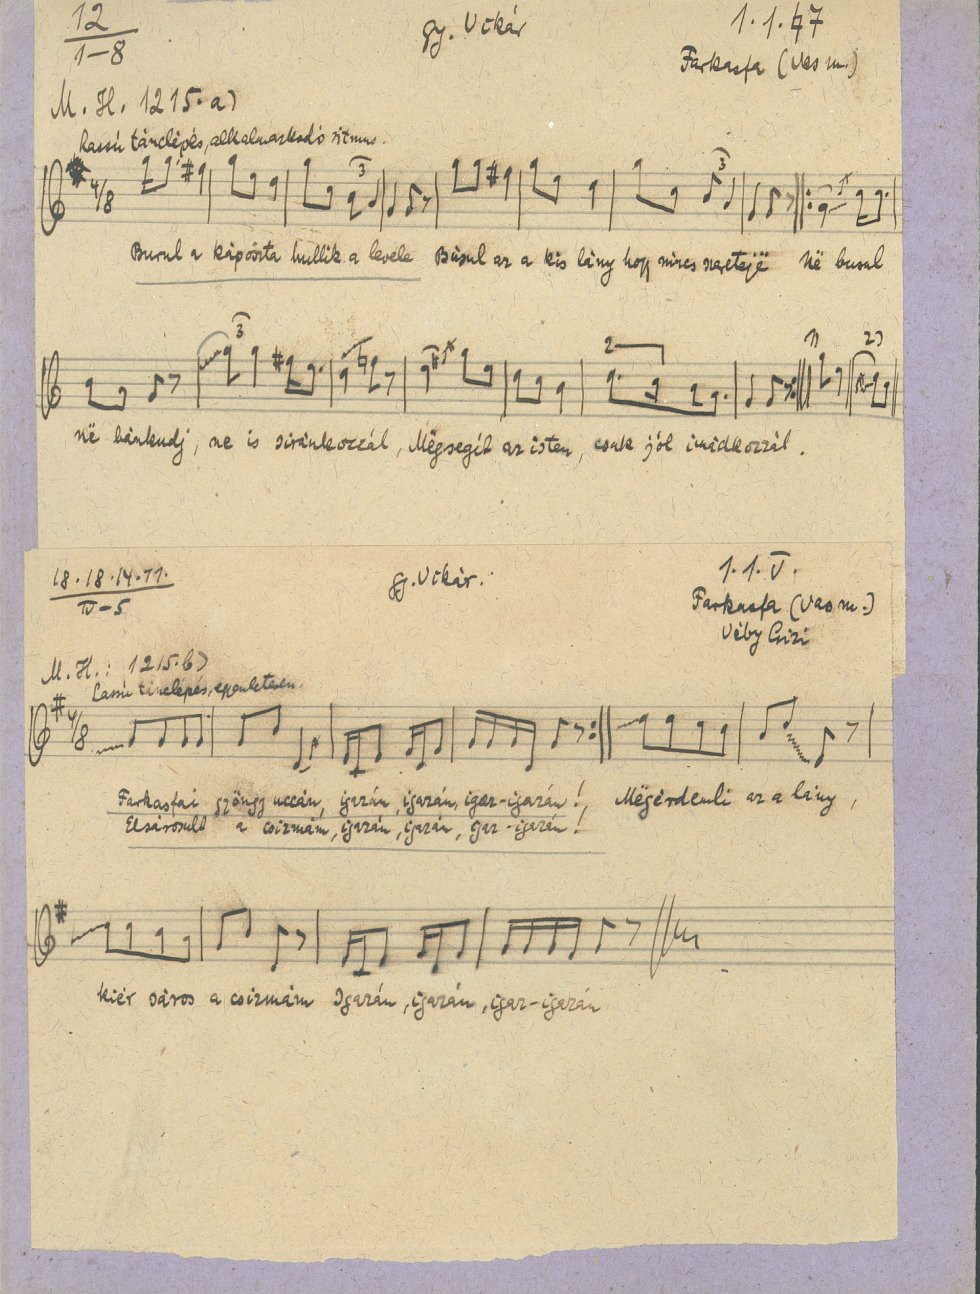 12
1-8
Gy. Vikár
1.1.47
Farkasfa (Vas m.)
M. H. 1215. a)
Lassú tánclépés, alkalmazkodó ritmus.
4/8
3
3
Busul a káposzta hullik a levele Búsul az a kis lány hogy nincs szeretejë Në busul
3
2
1) 2)
në bánkudj, ne is siránkozzál, Mëgsegít az isten, csak jól imádkozzál.
18.18.14.11.
IV-5
gy. Vikár.
1.1.V.
Farkasfa (Vas m.)
Véby Gizi
M. H.: 1215. b)
Lassú tánclépés,
4/8
Farkasfai gyöngy uccán, igazán, igazán, igaz-igazán!,
Mëgérdemli az a lány,
Elsárosult a csizmám, igazán, igazán, igaz-igazán!
kiér sáros a csizmám Igazán, igazán, igaz-igazán